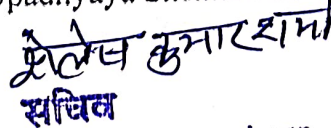 शैलेष कुमार शर्मा
सचिव